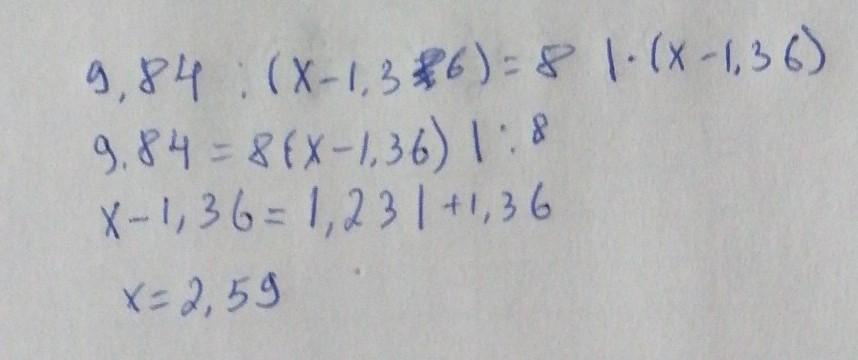 9,84 : (x-1,36) = 8 | · (x-1,36)
9.84 = 8(x-1,36) | : 8
x-1,36 = 1,23 | +1,36
x = 2,59